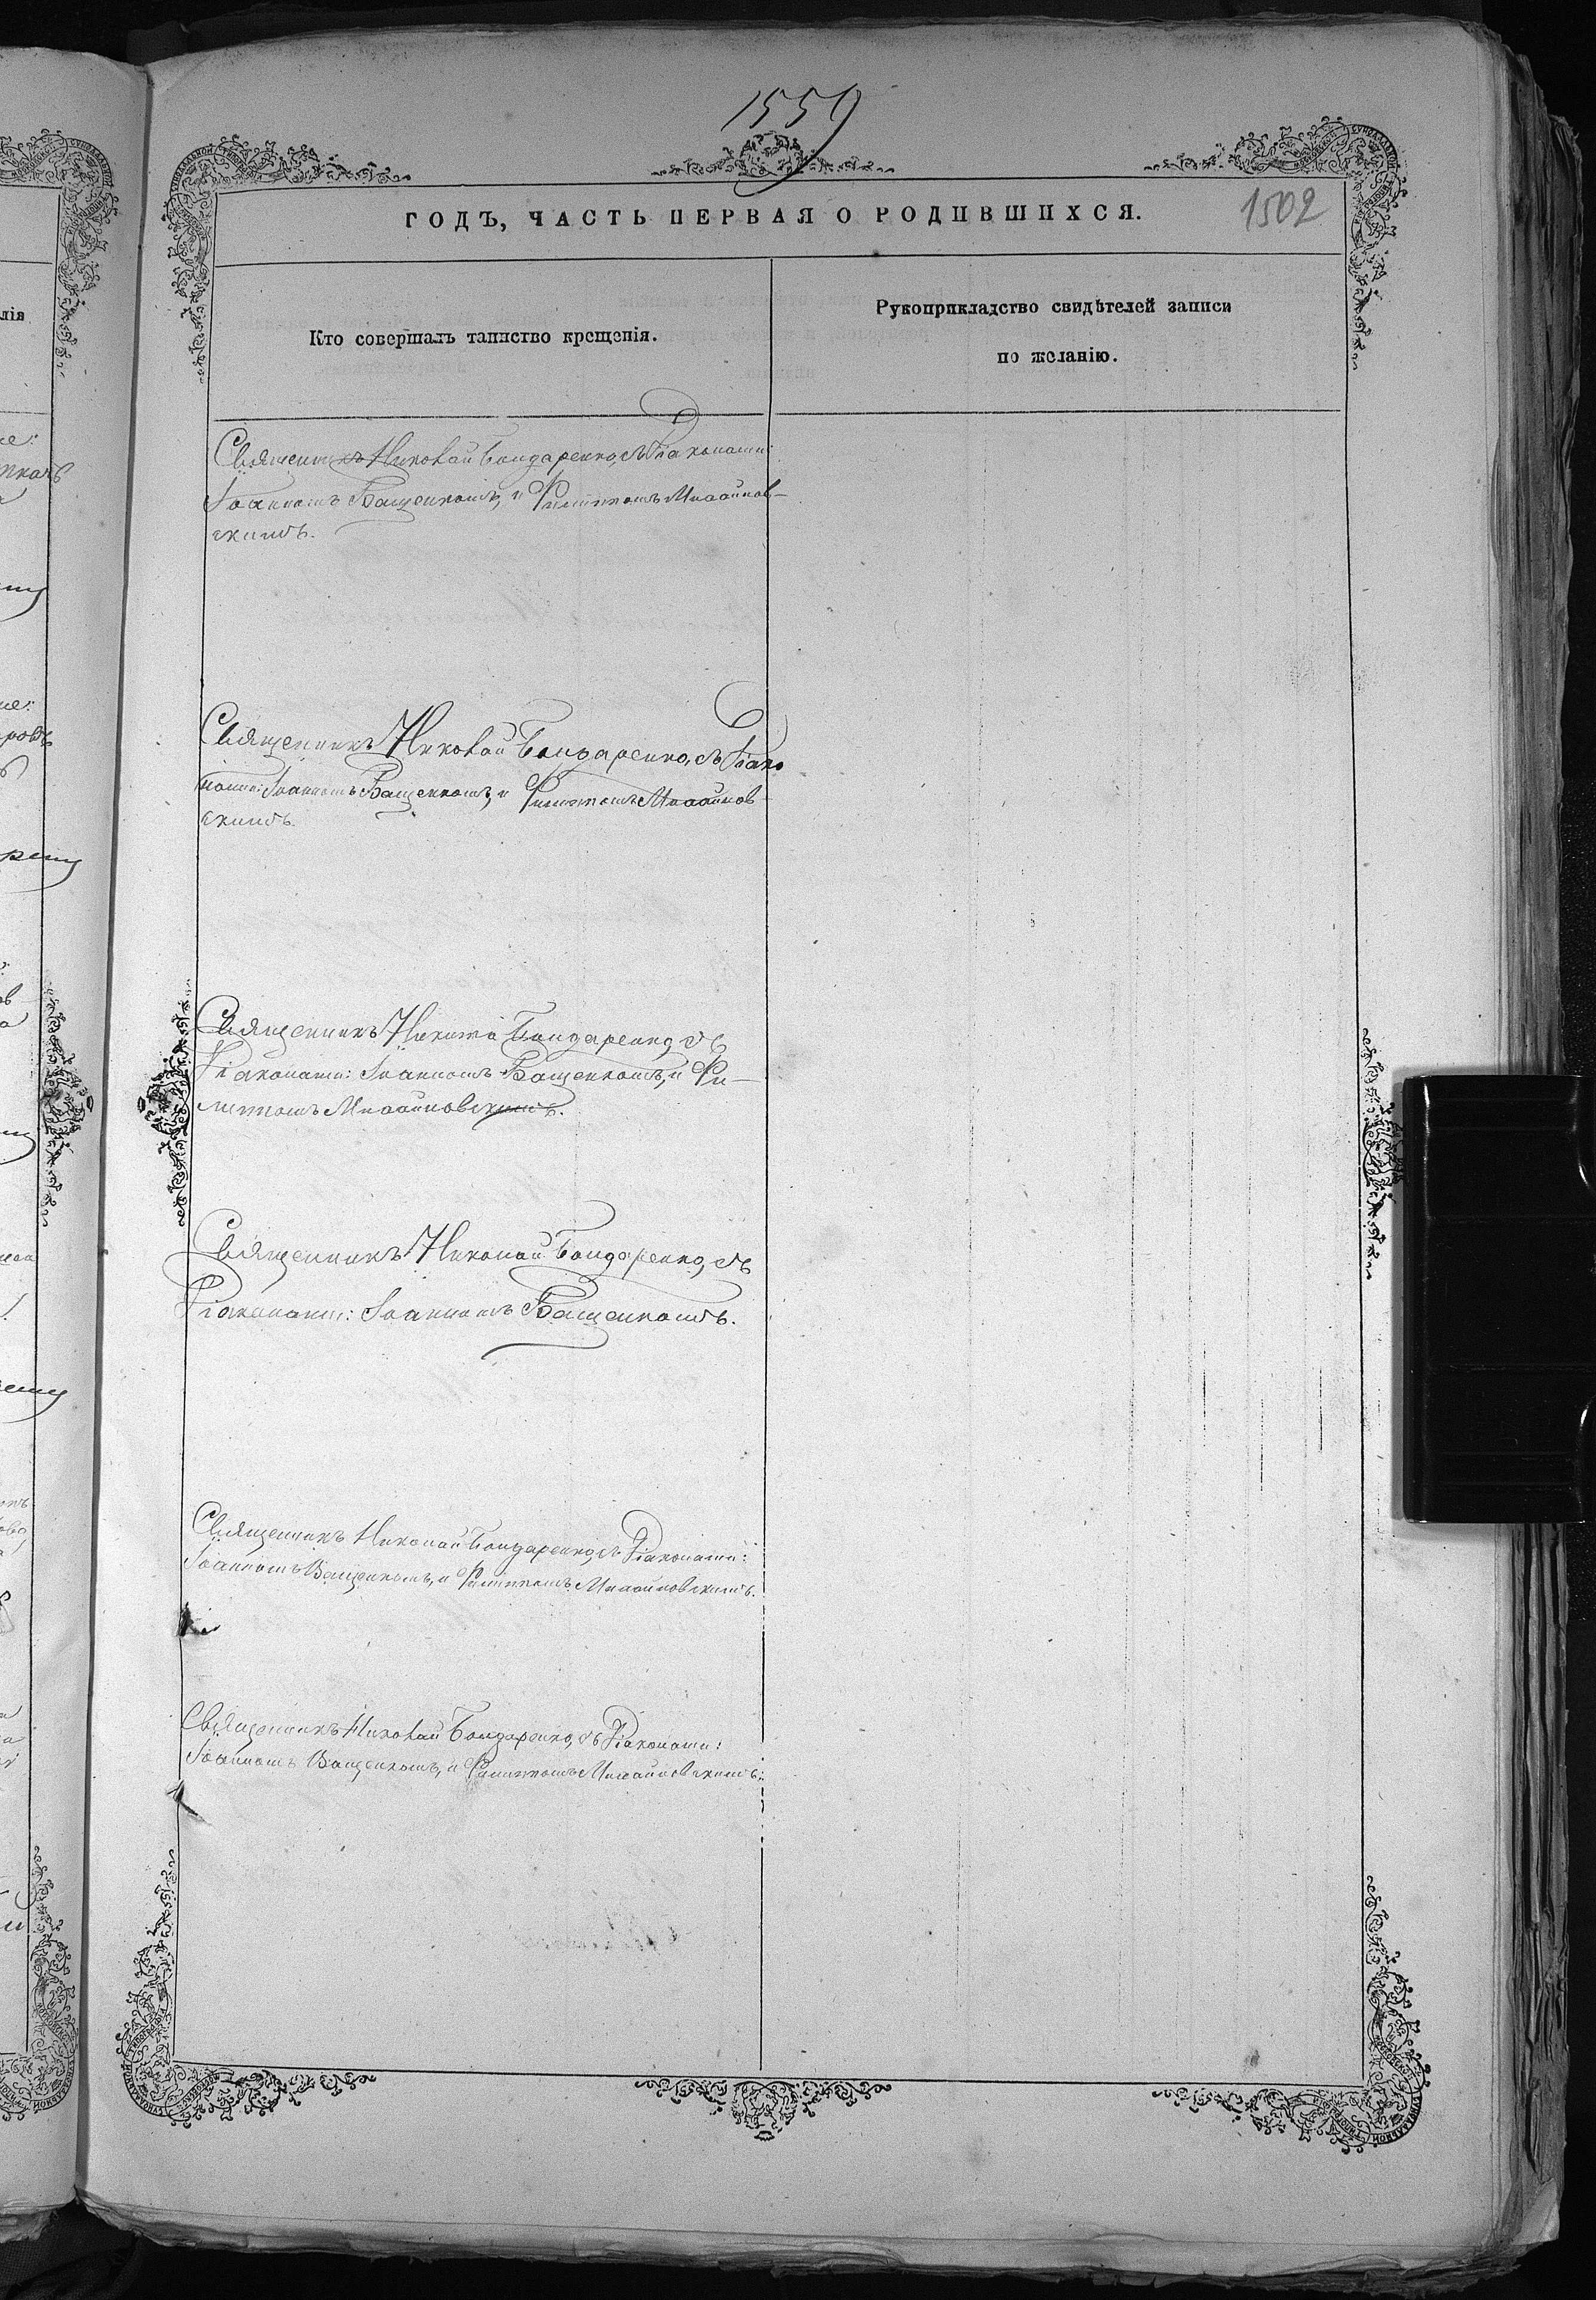 1559
1502
ГОДЪ, ЧАСТЬ ПЕРВАЯ О РОДИВШИХСЯ.
Кто совершалъ таинство крещенія.
Рукоприкладство свидѣтелей записи
по желанію.
Священникъ Николай Бондаренко, съ Діаконами:
Іоанномъ Ващенкомъ, и Филиппомъ
скимъ.
Священникъ Николай Бондаренко, съ Діако
нами: Іоанномъ Ващенкомъ, и Филиппомъ
скимъ.
Священникъ Николай Бондаренко, съ
Діаконами: Іоанномъ Ващенкомъ, и Фи-
липпомъ
Священникъ Николай Бондаренко, съ
Діаконами: Іоанномъ Ващенкомъ.
Священникъ Николай Бондаренко, съ Діаконами:
Іоанномъ Ващенкомъ, и Филиппомъ
Священникъ Николай Бондаренко, съ Діаконами:
Іоанномъ Ващенкомъ, и Филиппомъ